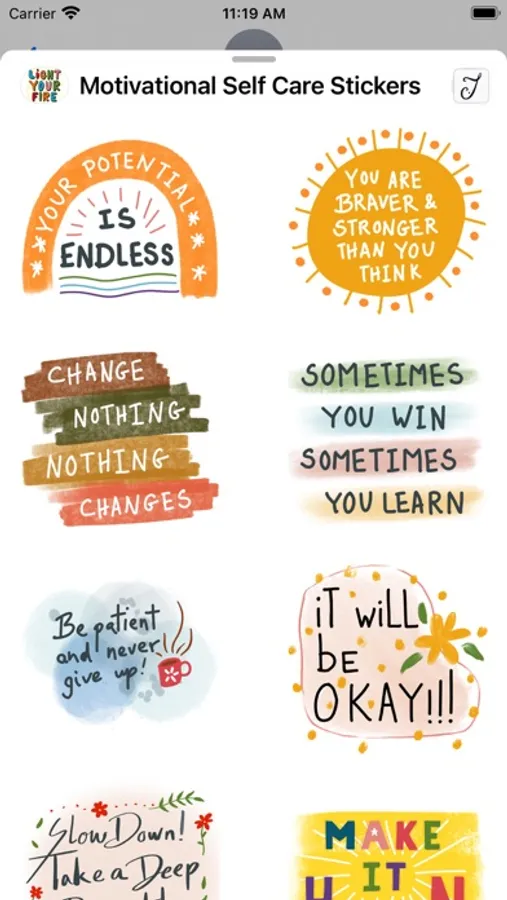 Carrier
11:19 AM
LiGHT
YOUR
FIRE
Motivational Self Care Stickers
YOUR POTENTIAL
IS
ENDLESS
YOU ARE
BRAVER &
STRONGER
THAN YOU
THINK
CHANGE
NOTHING
NOTHING
CHANGES
SOMETIMES
YOU WIN
SOMETIMES
YOU LEARN
Be patient
and never
give up!
iT WiLL
bE
OKAY!!!
Slow Down!
Take a Deep
MAKE
IT